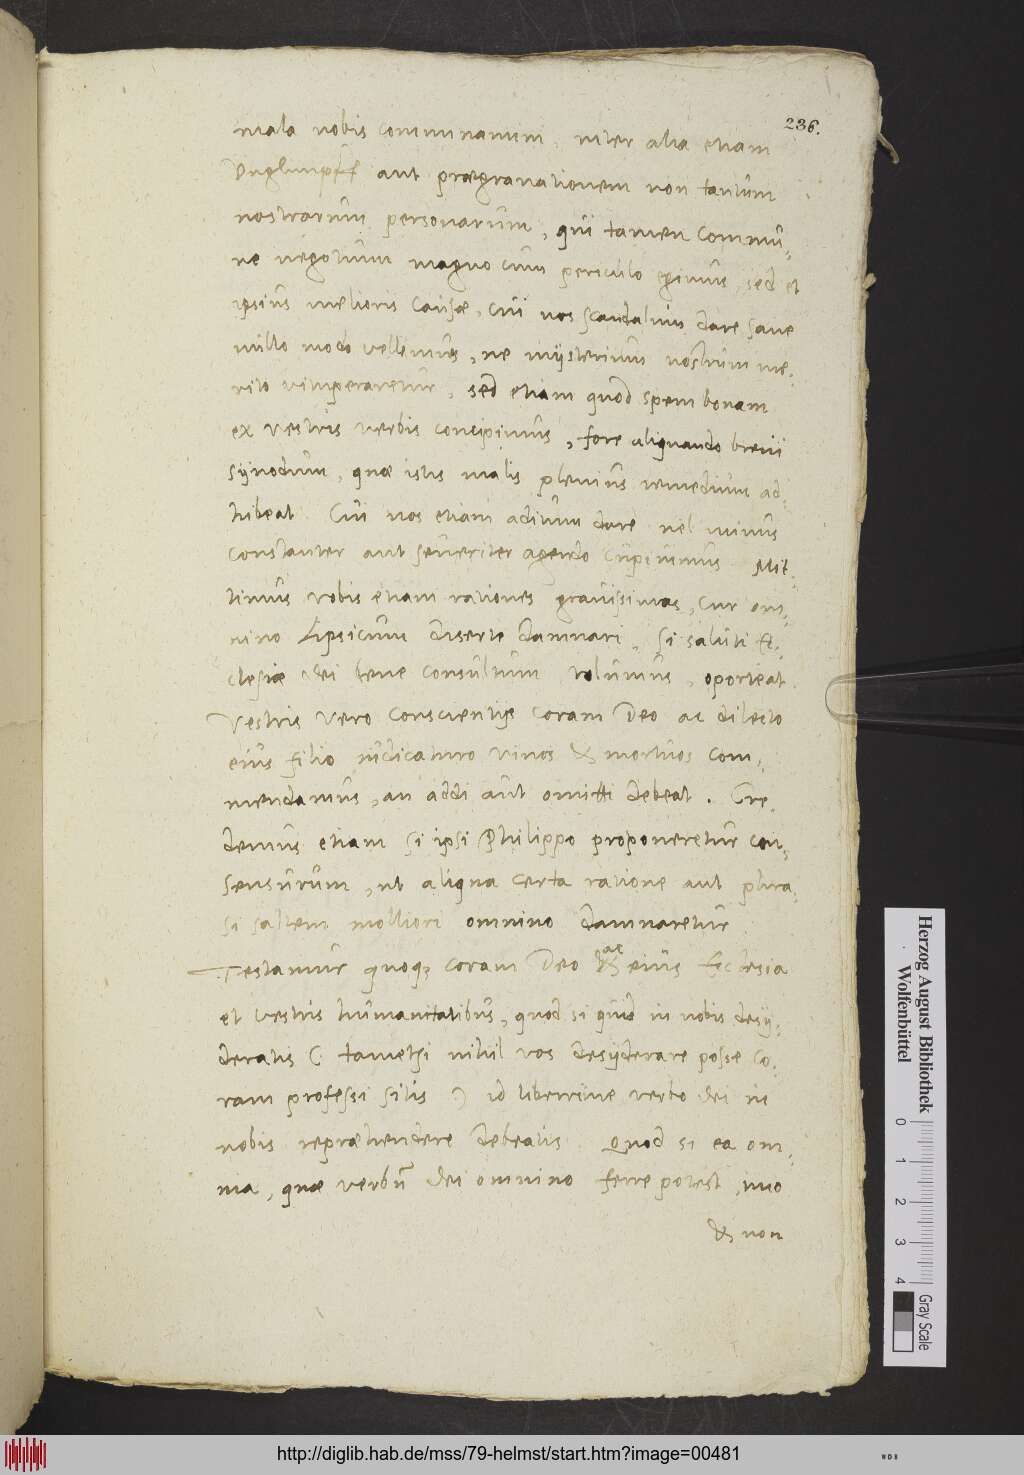 236.
mala nobis communamini, inter alia etiam
Unglimpff aut prægravationem non tantum
nostrarum personarum, qui tamen commu-
ne negotium magno cum periculo egimus, sed et
ipsius melioris causæ, cui nos scandalum dare sane
nullo modo vellemus, ne mysterium nostrum me-
rito vituperaretur, sed etiam quod spem bonam
ex vestris verbis concipimus, fore aliquando brevi
synodum, quæ istis malis plenius remedium ad-
hibeat. Cui nos etiam aditum dare vel minus
constanter aut severiter agendo cupimus. Mit-
timus vobis etiam rationes gravissimas, cur om-
nino Lipsicum diserte damnari, si saluti Ec-
clesiæ dei bene consultum volumus, oporteat.
Vestris vero conscientijs coram Deo ac dilecto
eius filio iudicaturo vivos & mortuos com-
mendamus, an addi aut omitti debeat. Cre-
demus etiam si ipsi Philippo proponeretur con-
sensurum, ut aliqua certa ratione aut phra-
si saltem molliori omnino damnaretur.
Testamur quoqꝫ coram Deo & ac eius Ecclesia
et vestris humanitatibus, quod si quid in nobis desy-
deratis (: tametsi nihil vos desyderare posse co-
ram professi sitis :) id liberrime verbo dei in
nobis repræhendere debeatis. Quod si ea om-
nia, quæ verbũ dei omnino ferre potest, imo
& non
Herzog August Bibliothek
Wolfenbüttel
0 1 2 3 4
Gray Scale
http://diglib.hab.de/mss/79-helmst/start.htm?image=00481
WDB